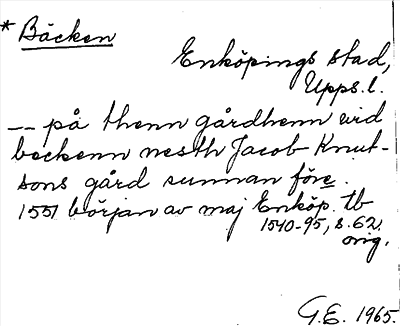 * Bäcken
Enköpings stad,
Upps. l.
-- på thenn gårdhenn wid
beckenn nesth Jacob Knut-
sons gård sunnan före.
1551 början av maj Enköp. tb
1540-95, s. 62
orig.
G.E. 1965.